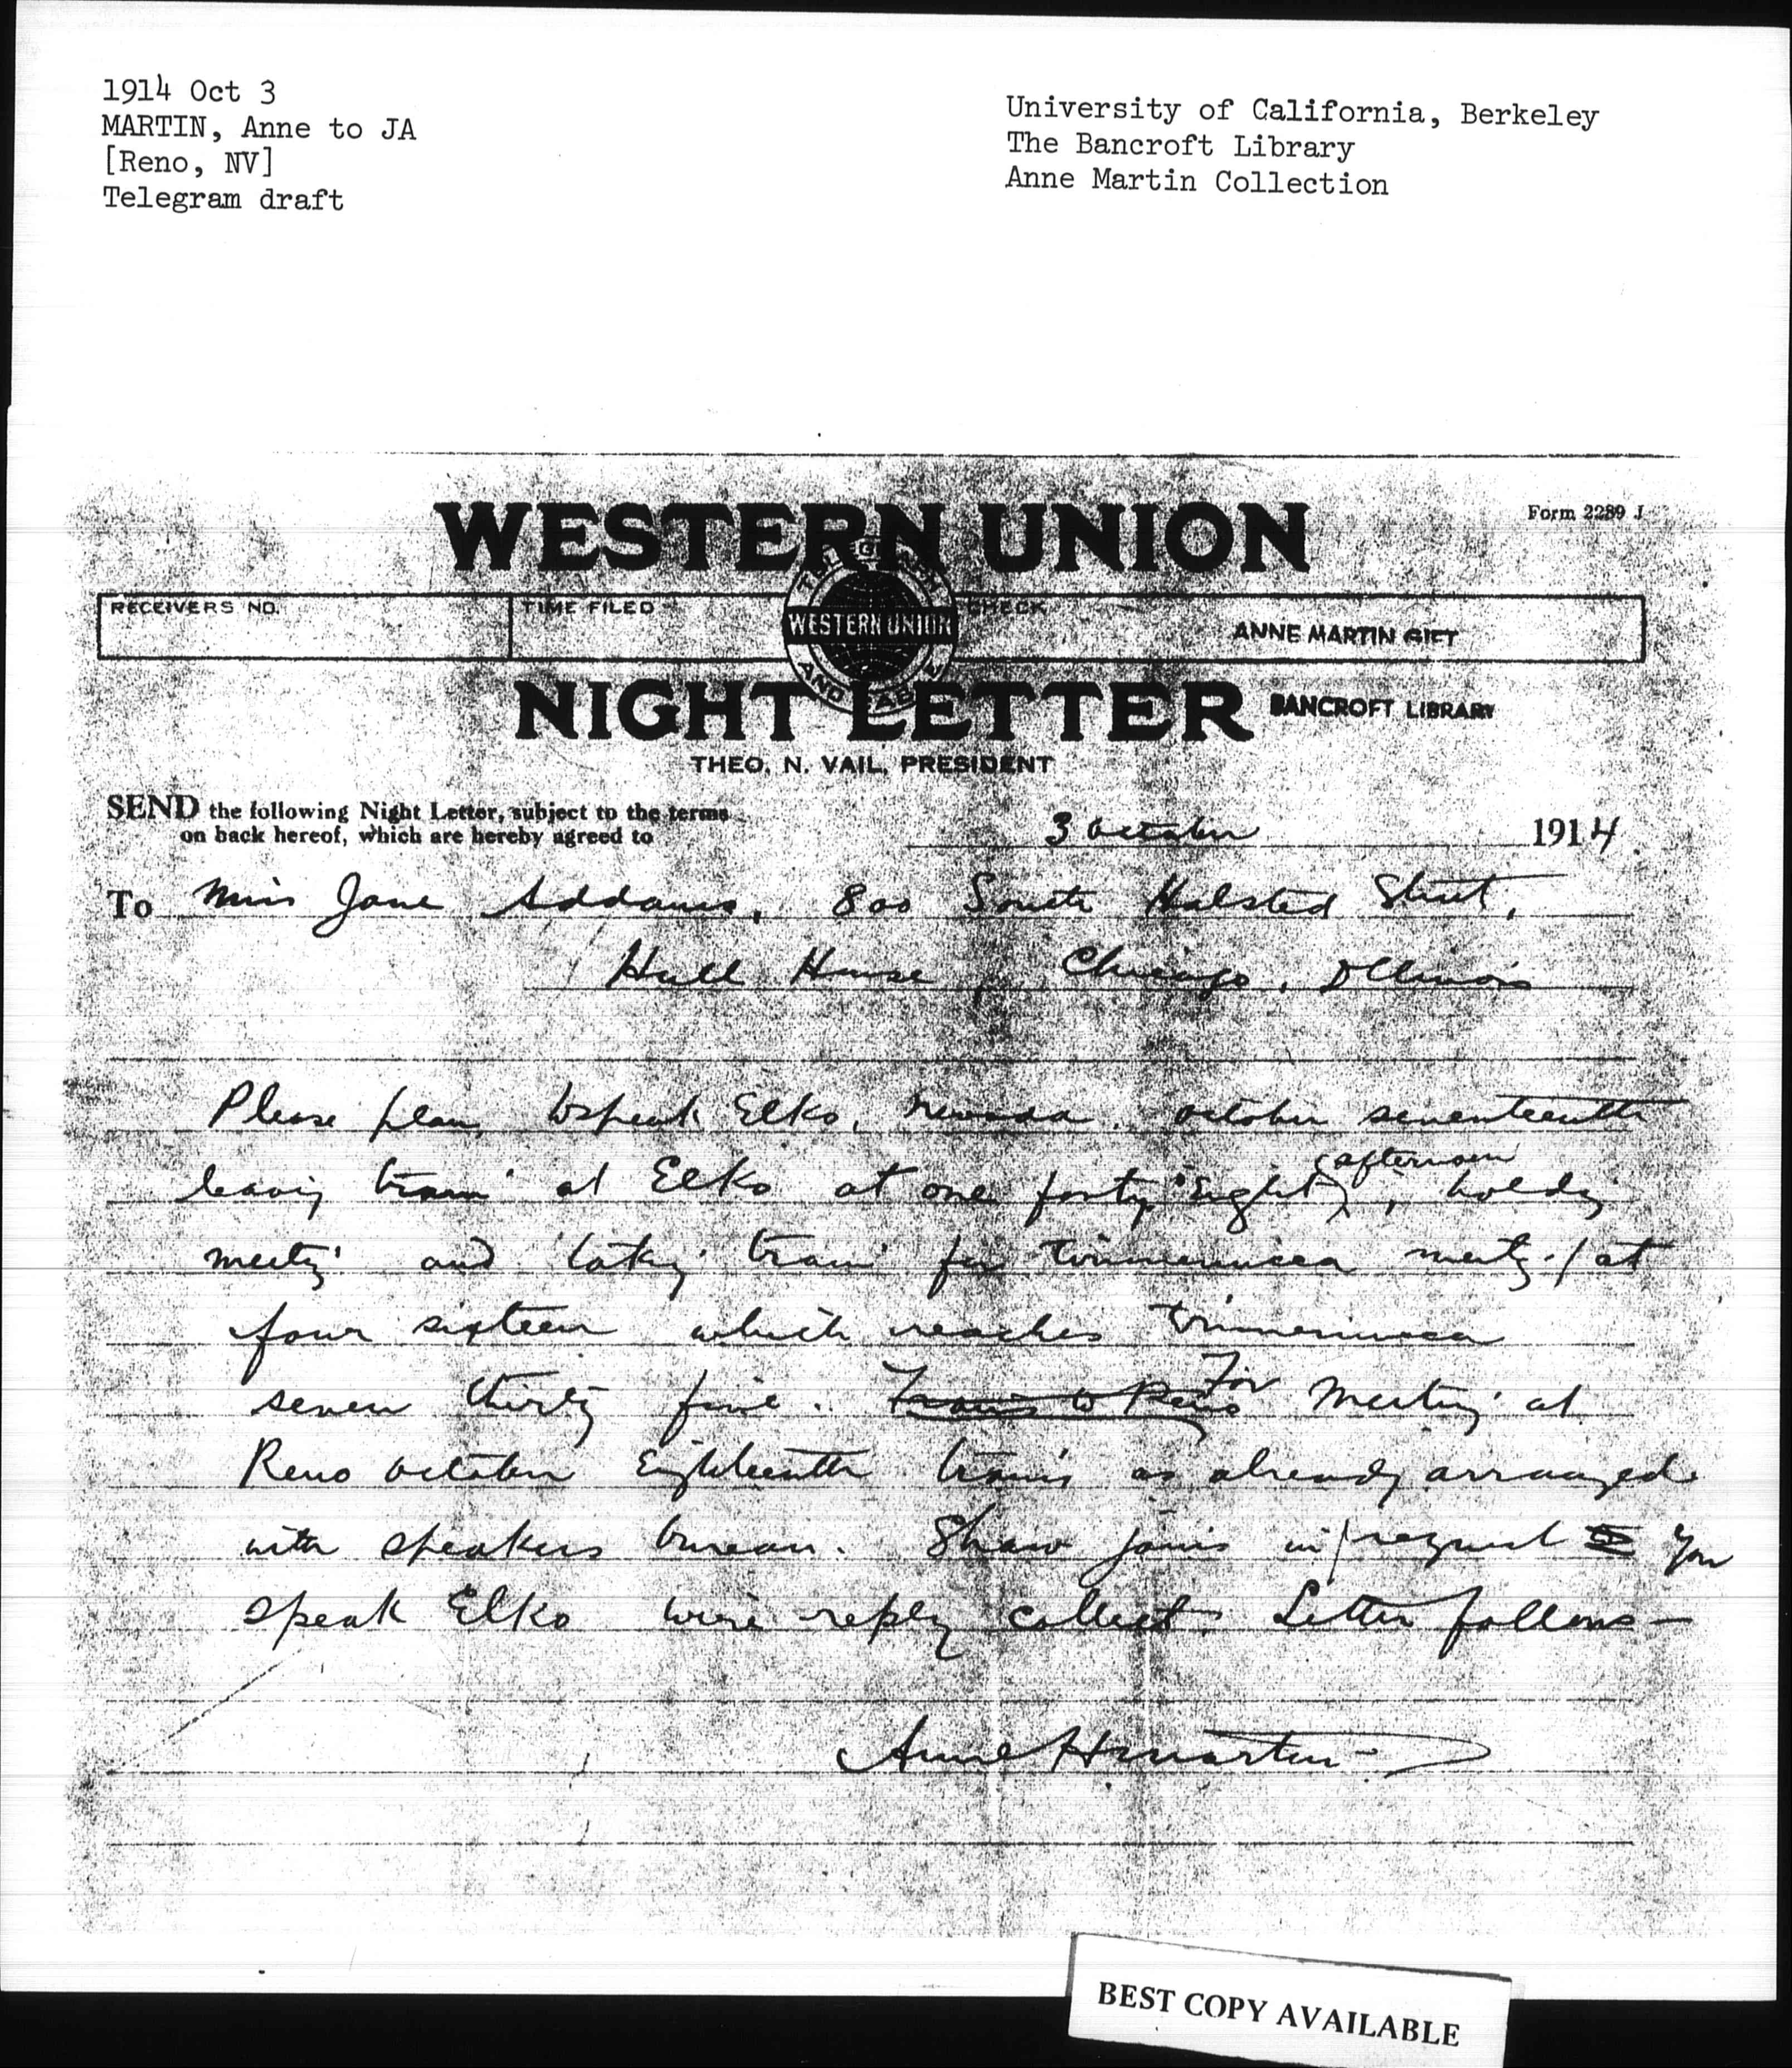 1914 Oct 3
MARTIN, Anne to JA
[Reno, NV]
Telegram draft
University of California, Berkeley
The Bancroft Library
Anne Martin Collection
WESTERN UNION
Form 2289 J
RECEIVERS NO.
TIME FILED
CHECK
TELEGRAPH
WESTERN UNION
AND CABLE
ANNE MARTIN GIFT
NIGHT LETTER
BANCROFT LIBRARY
THEO. N. VAIL, PRESIDENT
SEND the following Night Letter, subject to the terms
on back hereof, which are hereby agreed to
3 October 1914
To Miss Jane Addams, 800 South Halsted Street,
Hull House, Chicago, Illinois
Please plan to speak Elko, Nevada, October seventeenth
leaving train at Elko at one forty eight afternoon, holding
meeting and taking train for Winnemucca meeting at
four sixteen which reaches Winnemucca
seven thirty five. Trains to Reno For Meeting at
Reno October Eighteenth trains as already arranged
with speakers bureau. Shaw joins in request you
speak Elko wire reply collect. Letter follows—
Anne H Martin
BEST COPY AVAILABLE